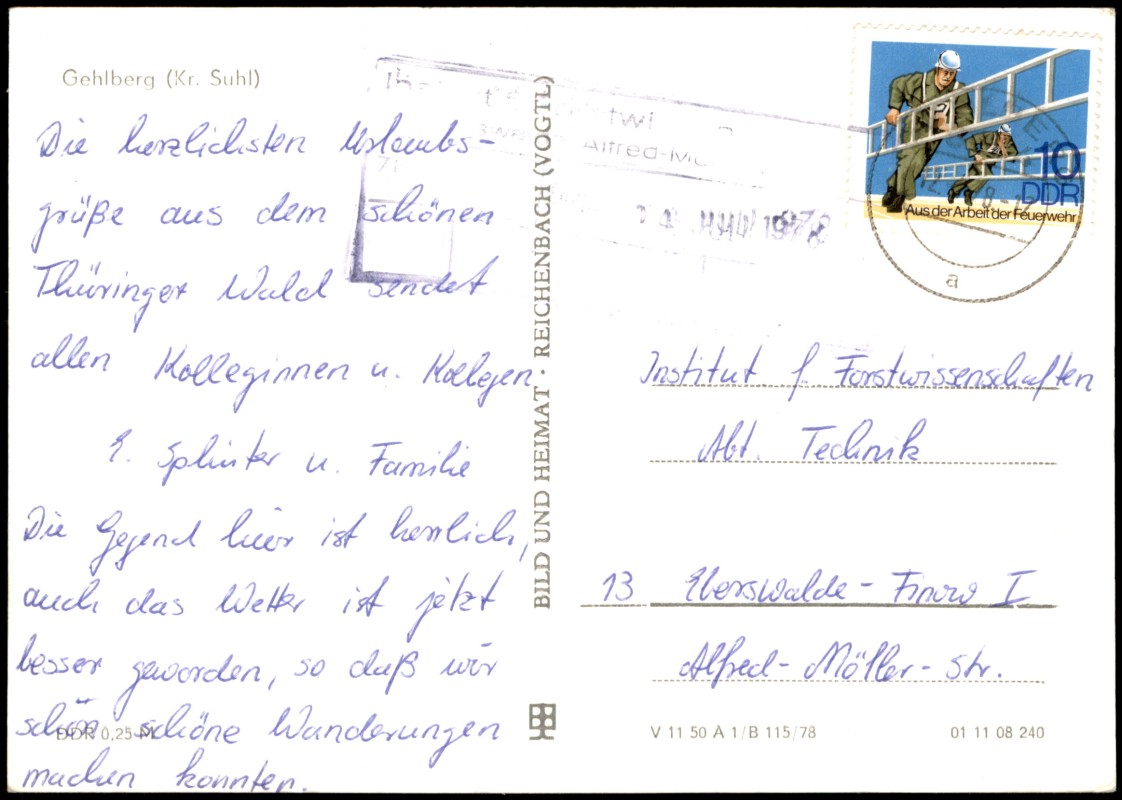 Gehlberg (Kr. Suhl)
Die herzlichsten Urlaubs-
grüße aus dem schönen
Thüringer Wald sendet
allen Kolleginnen u. Kollegen
E. Splinter u. Familie
Die Gegend hier ist herrlich,
auch das Wetter ist jetzt
besser geworden, so daß wir
schon schöne Wanderungen
machen konnten.
DDR 0,25 M
BILD UND HEIMAT · REICHENBACH (VOGTL)
Alfred-Mö
1978
10
DDR
Aus der Arbeit der Feuerwehr
a
Institut f. Forstwissenschaften
Abt. Technik
13 Eberswalde-Finow I
Alfred-Möller-Str.
V 11 50 A 1/B 115/78
01 11 08 240